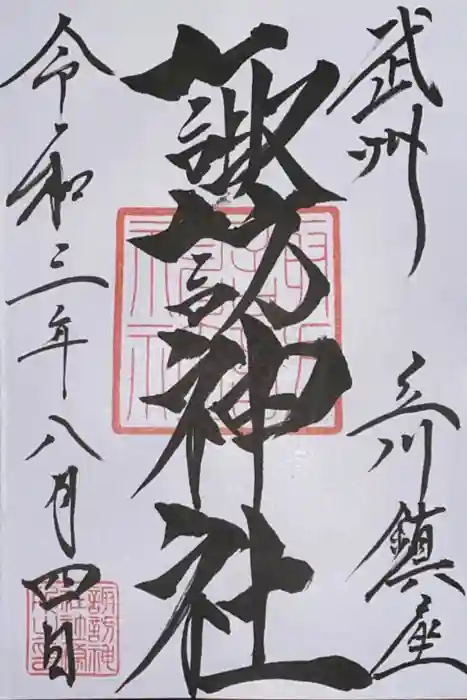 武州 立川鎮座
諏訪神社
令和三年八月四日